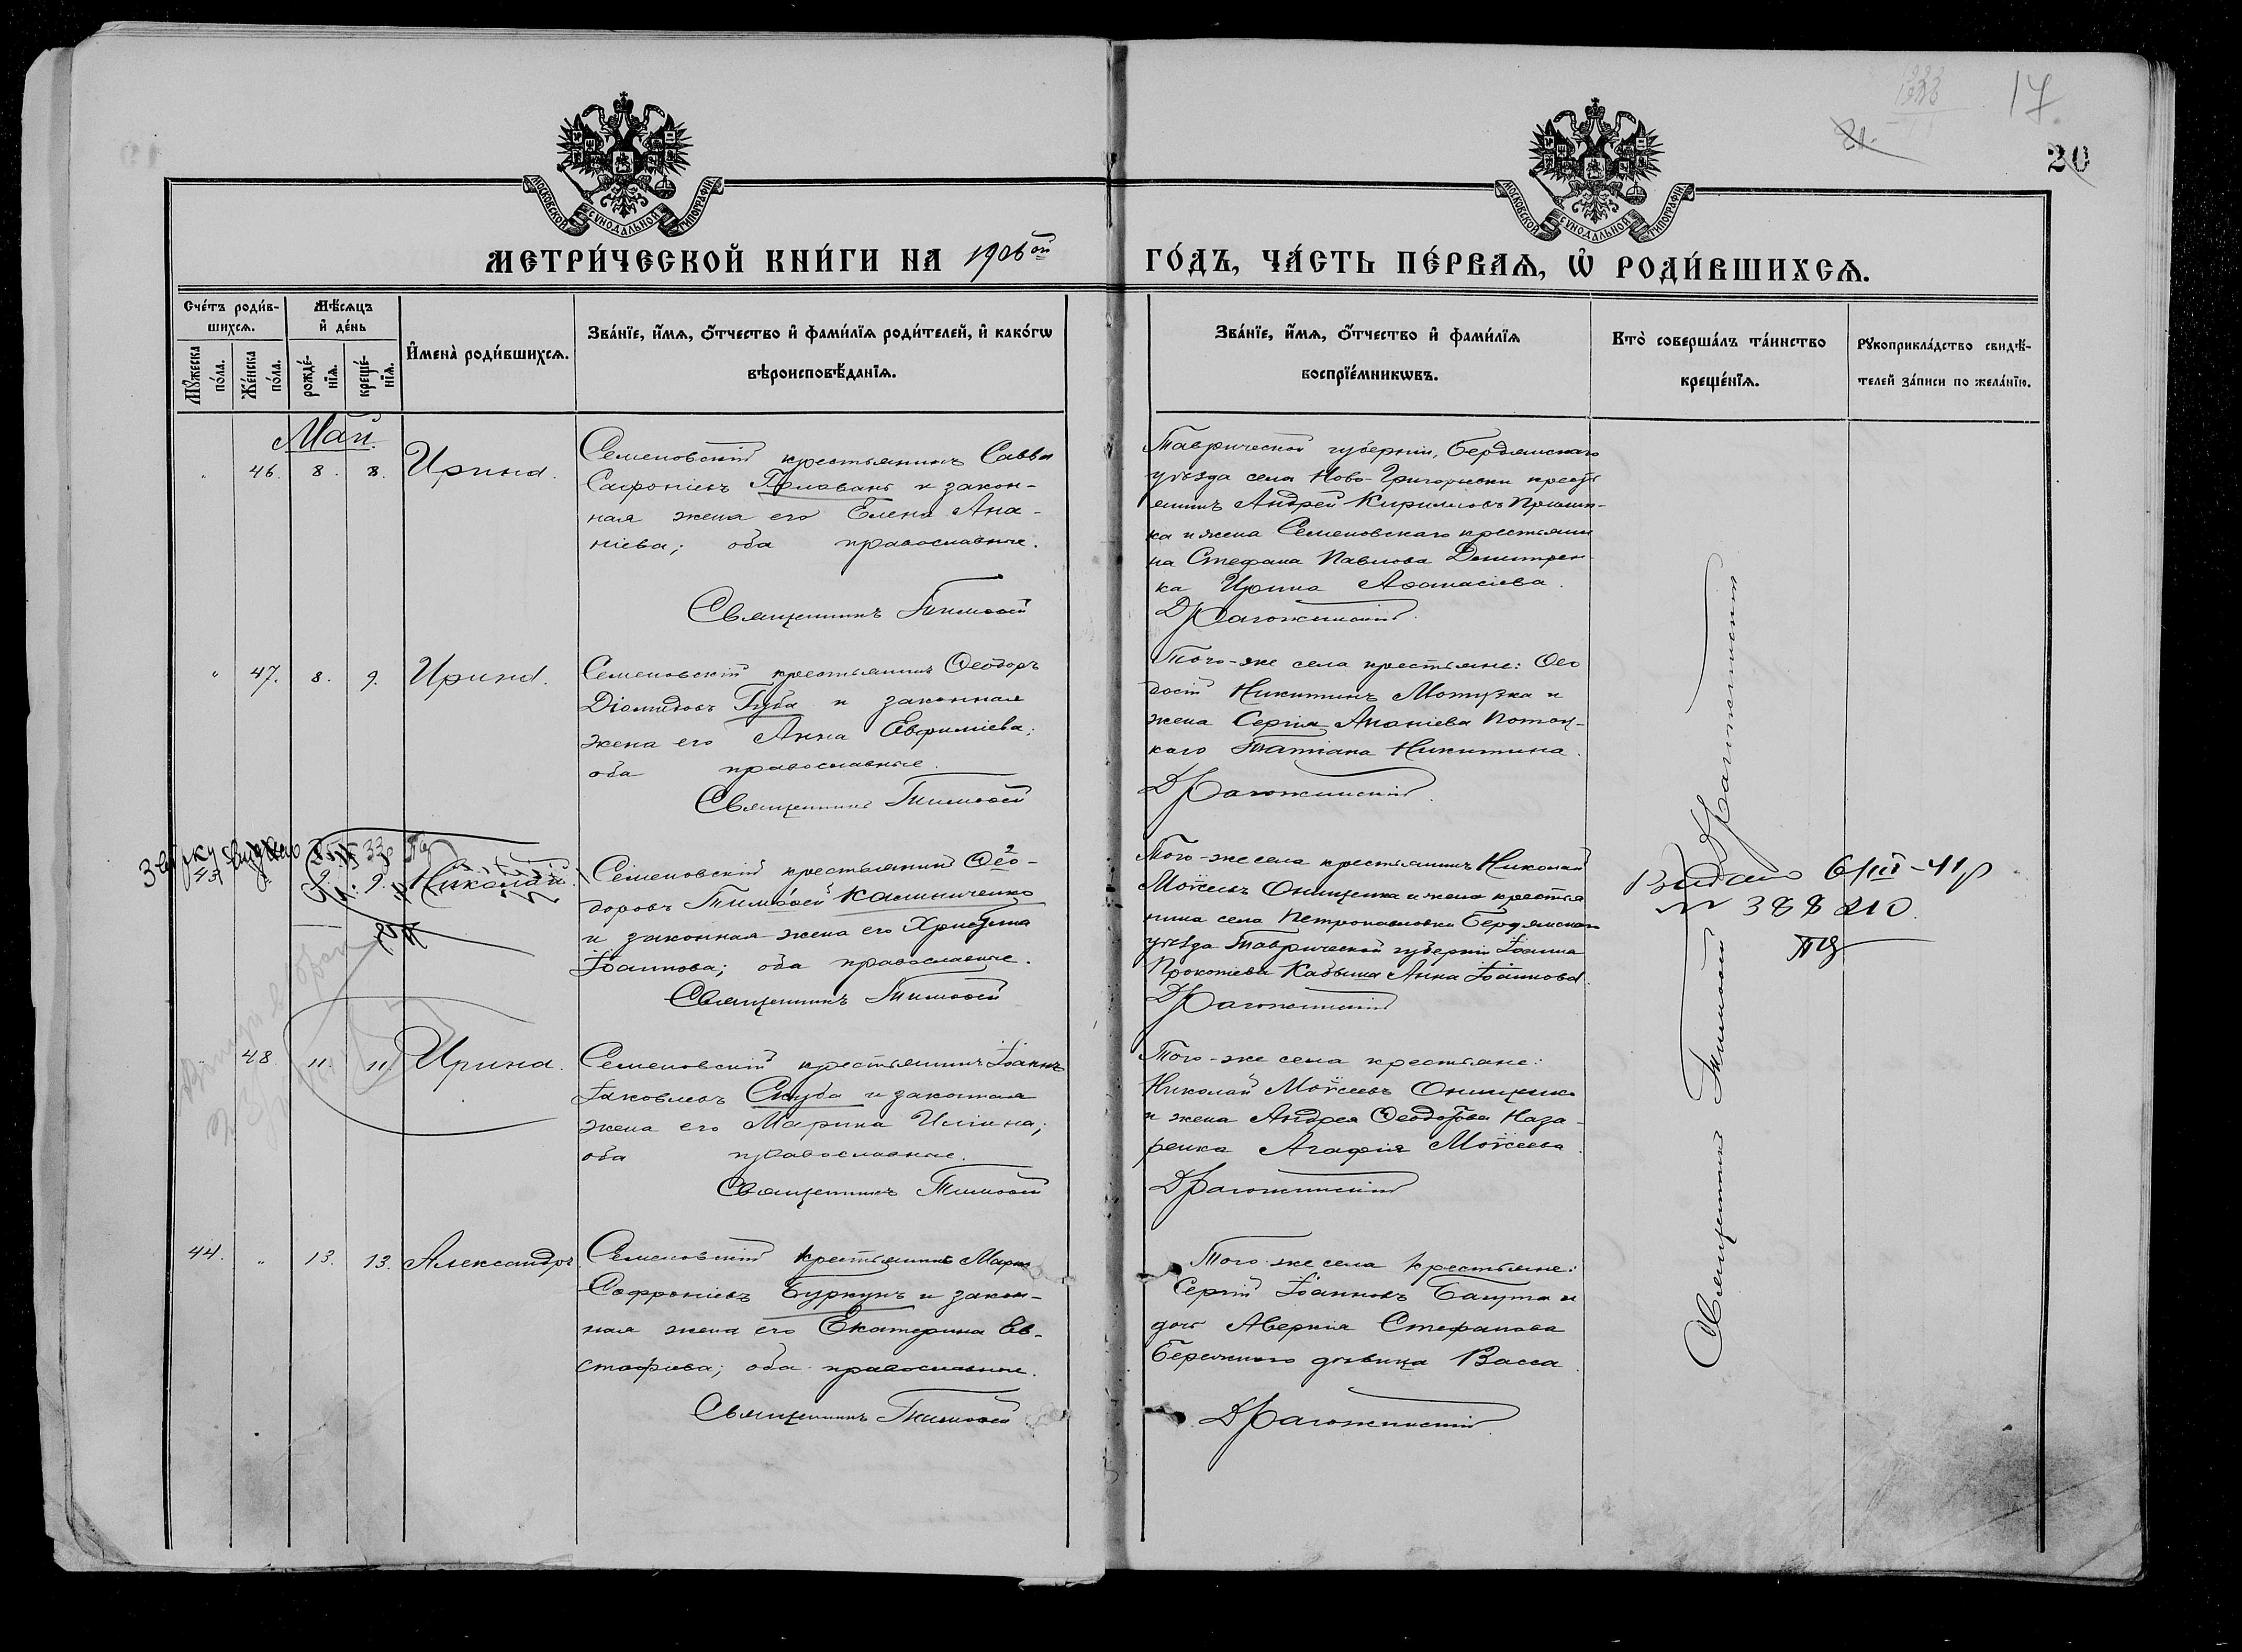 17
20
МОСКОВСКОЙ СѴНОДАЛЬНОЙ ТИПОГРАФІИ
МОСКОВСКОЙ СѴНОДАЛЬНОЙ ТИПОГРАФІИ
МЕТРИ́ЧЕСКОЙ КНИ́ГИ НА 1906ой ГО́ДЪ, ЧА́СТЬ ПЕ́РВАѦ, Ѡ РОДИ́ВШИХСѦ.
Сче́тъ роди́в-
шихсѧ.
Мꙋжеска по́ла.
Же́нска по́ла.
Мѣ́сѧцъ
и҆ де́нь
рожде́-
нїѧ.
креще́-
нїѧ.
И҆мена̀ роди́вшихсѧ.
Зва́нїе, и҆́мѧ, ѻ҆́тчество и҆ фами́лїѧ роди́телей, и҆ како́гѡ
вѣроисповѣ́данїѧ.
Зва́нїе, и҆́мѧ, ѻ҆́тчество и҆ фами́лїѧ
воспрїе́мникѡвъ.
Кто̀ соверша́лъ та́инство
креще́нїѧ.
Рꙋкоприкла́дство свидѣ́-
телей за́писи по жела́нїю.
Май.
46. 8. 8. Ирина.
Семеновскій крестьянинъ Савва
Софроніевъ и закон-
ная жена его Елена Ана-
ніева; оба православные.
Священникъ Тимоѳей
Таврической губерніи, Бердянскаго
уѣзда села Ново-Григорьевки крестья
янинъ Андрей Кирилловъ
ка и жена Семеновскаго крестьяни
на Стефана Павлова Демитрен-
ка Ирина Аѳанасіева.
Драгожинскій.
47. 8. 9. Ирина.
Семеновскій крестьянинъ Ѳеодоръ
Діомидовъ Губа и законная
жена его Анна Евфиміева;
оба православные.
Священникъ Тимоѳей
Того-же села крестьяне: Ѳео
досій Никитинъ Мотузка и
жена Сергія Ананіева Потоц-
каго Татіана Никитина.
Драгожинскій.
43 9. 9. Николай.
Семеновскій крестьянинъ Ѳео-
доровъ Тимоѳей Калиниченко
и законная жена его Христина
Іоаннова; оба православные.
Священникъ Тимоѳей
Того-же села крестьянинъ Николай
Моѵсеевъ Онищенка и жена крестья
нина села Петропавловки Бердянскаго
уѣзда Таврической губерніи Іоанна
Прокопіева Анна Іоаннова.
Драгожинскій
Видано 6/III-41р
№ 388210
48 11. 11 Ирина.
Семеновскій крестьянинъ Іоаннъ
Іаковлевъ Скуба и законная
жена его Марина Иліина;
оба православные.
Священникъ Тимоѳей
Того-же села крестьяне:
Николай Моѵсеевъ Онищенко
и жена Андрея Ѳеодорова Наза-
ренка Агафія Моѵсеева.
Драгожинскій
44. 13. 13. Александръ
Семеновскій крестьянинъ Марк
Софроніевъ Буркунъ и закон-
ная жена его Екатерина Ев-
стафіева; оба православные.
Священникъ Тимоѳей
Того-же села крестьяне:
Сергій Іоанновъ и
дочь Аверкія Стефанова
дѣвица Васса.
Драгожинскій.
Священникъ Тимоѳей Драгожинскій